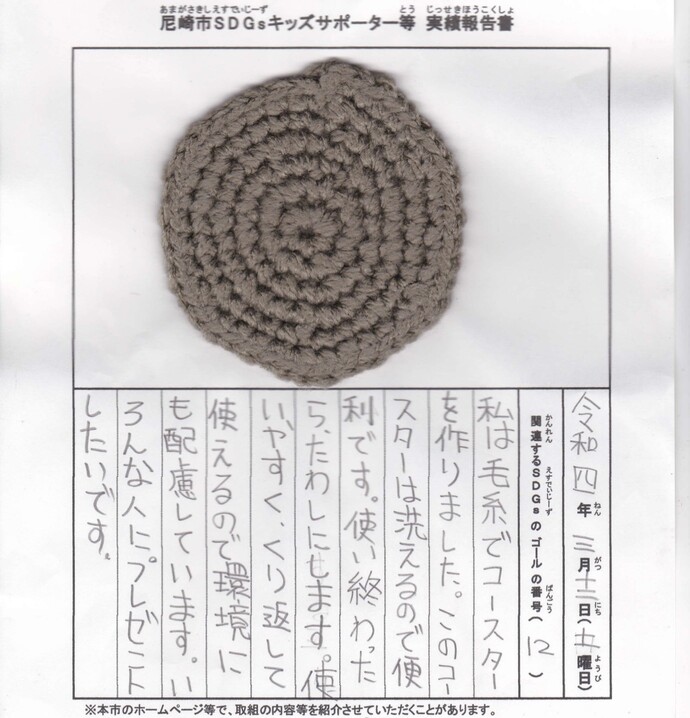 尼崎市SDGsキッズサポーター等 実績報告書
令和四年三月十二日(土曜日)
関連するSDGsのゴールの番号(12)
私は毛糸でコースター
を作りました。このコー
スターは洗えるので便
利です。使い終わった
ら、たわしにします。使
いやすく、くり返して
使えるので環境に
も配慮しています。い
ろんな人にプレゼント
したいです。
※本市のホームページ等で、取組の内容等を紹介させていただくことがあります。